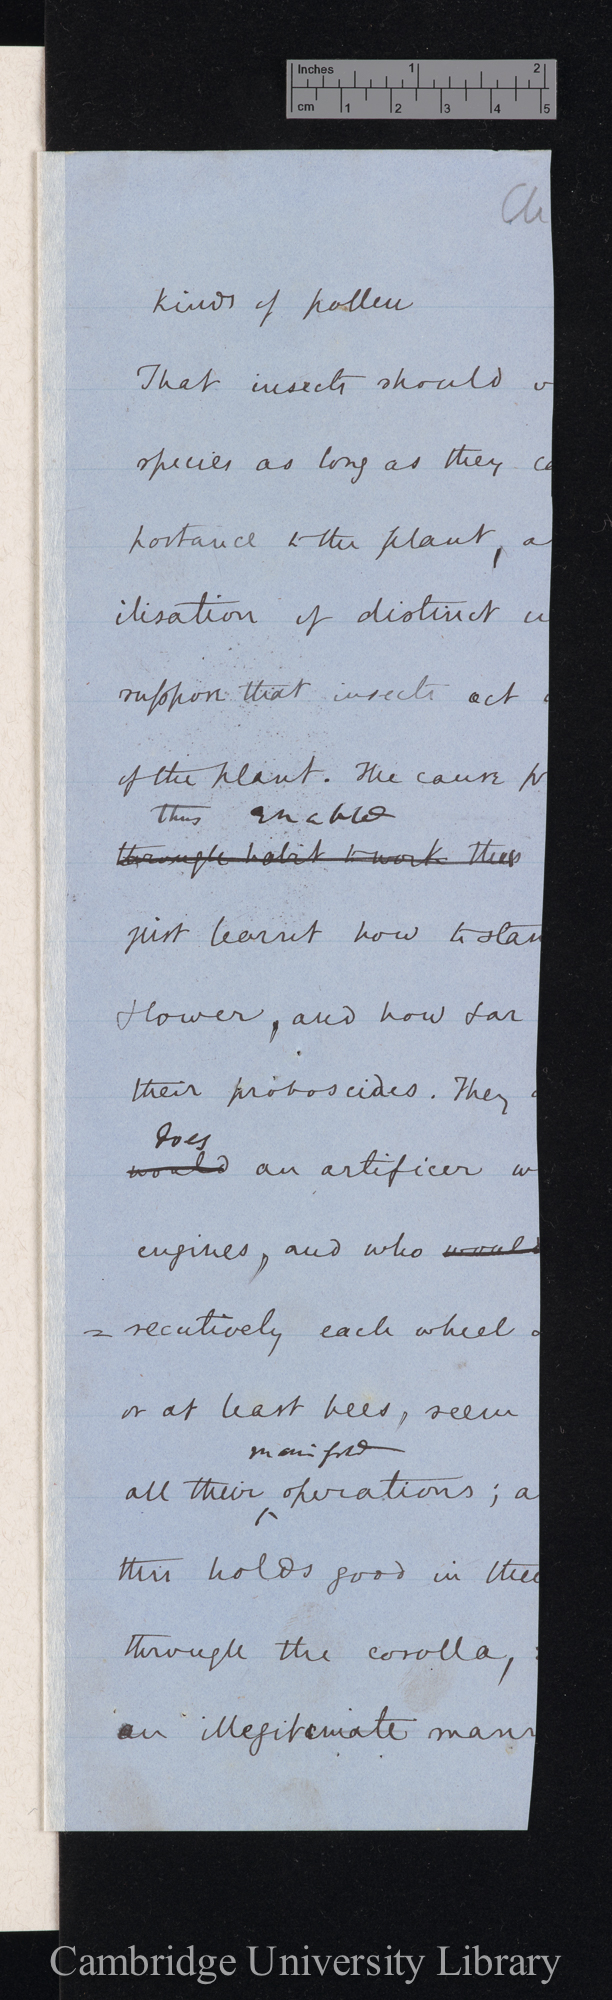 Inches 1 2
cm 1 2 3 4 5
Ch
kinds of pollen
That insects should v
species as long as they ca
portance to the plant, a
ilisation of distinct
suppose that insects act
of the plant. The cause pr
thus enabled
through habit to work thus
just learnt how to stan
flower, and how far
their proboscides. They
does
would an artificer w
engines, and who would
= secutively each wheel
or at least bees, seem
manifold
all their ^ operations; a
this holds good in thei
through the corolla,
an illegitimate mann
Cambridge University Library